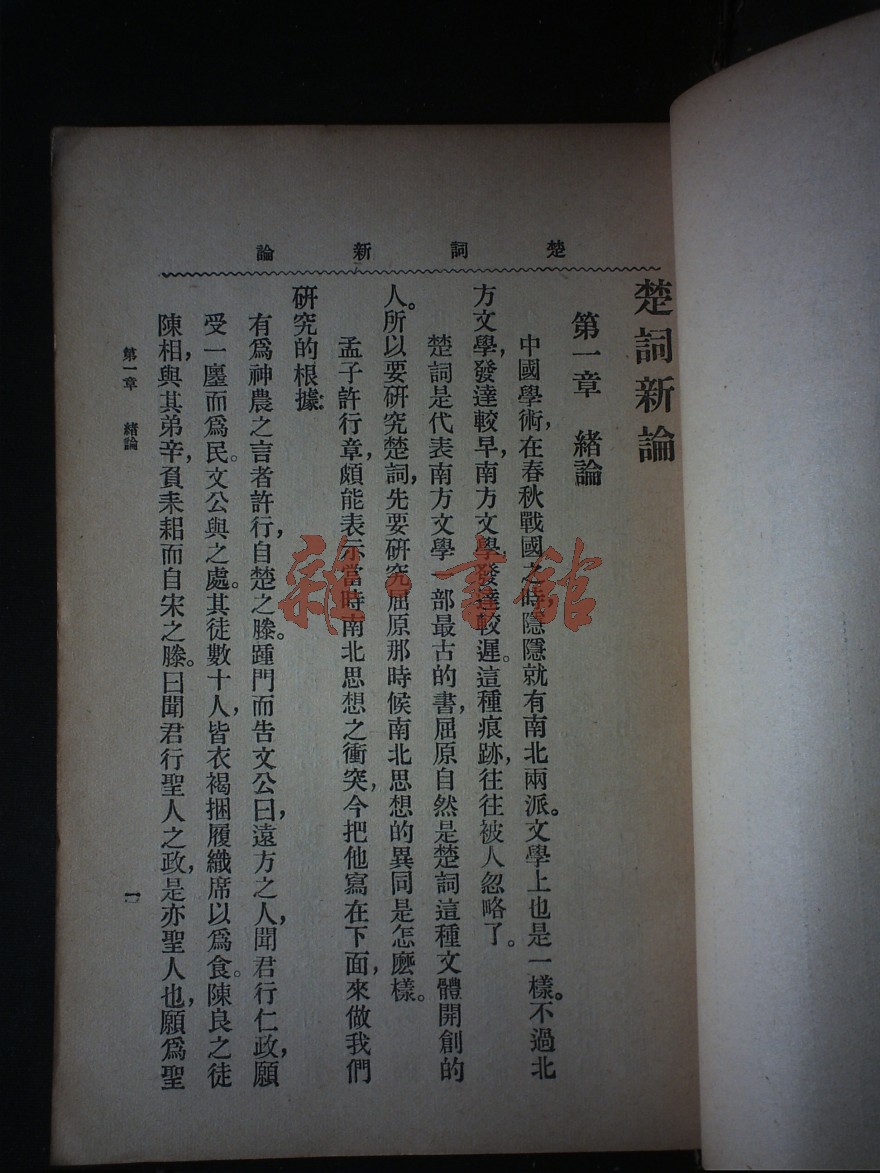 楚詞新論
楚詞新論
第一章　緒論
中國學術，在春秋戰國之時，隱隱就有南北兩派。文學上也是一樣。不過北
方文學，發達較早，南方文學，發達較遲。這種痕跡，往往被人忽略了。
楚詞是代表南方文學一部最古的書，屈原自然是楚詞這種文體開創的
人。所以要研究楚詞，先要研究屈原那時候南北思想的異同是怎麽樣。
孟子許行章，頗能表示當時南北思想之衝突，今把他寫在下面，來做我們
研究的根據：
有爲神農之言者許行，自楚之滕。踵門而告文公曰，遠方之人，聞君行仁政，願
受一廛而爲民。文公與之處。其徒數十人，皆衣褐捆履織席以爲食。陳良之徒
陳相，與其弟辛，負耒耜而自宋之滕。曰聞君行聖人之政，是亦聖人也，願爲聖
第一章　緒論
一
雜·書館